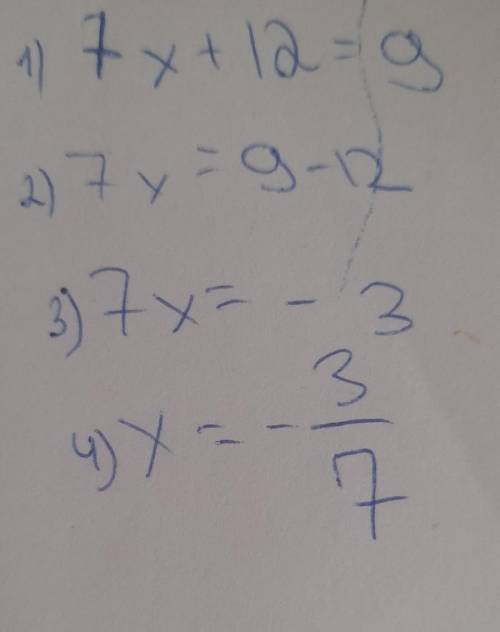 1) 7x + 12 = 9
2) 7x = 9 - 12
3) 7x = - 3
4) x = - 3/7